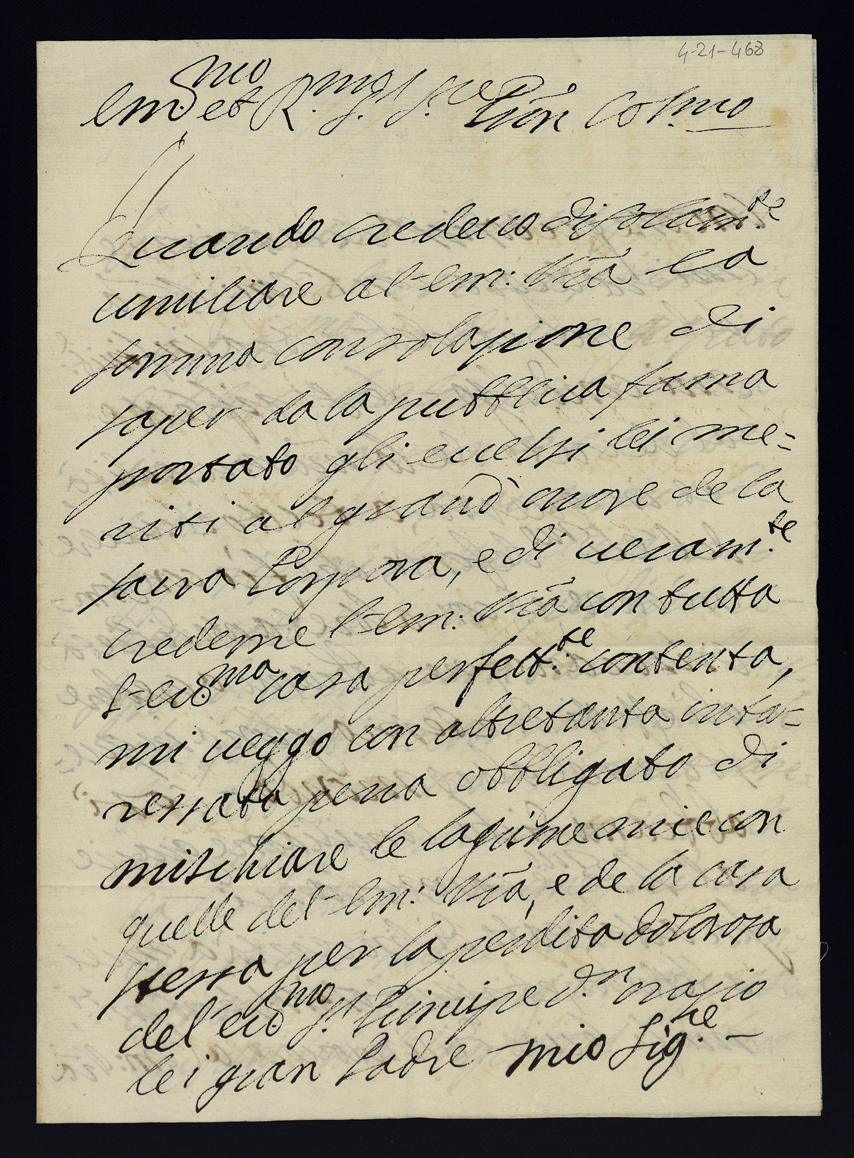 4-21-468
Em.mo et R.mo Sig.r Sig.re Pron Col.mo
Quando credeuo di solam.te
umiliare al-em: Vrã la
somma consolazione di
saper da la pubblica fama
portato gli eccelsi lei me=
riti al grand' onore de la
sacra Porpora, e di ueram.te
crederne l'-em: Vrã con tutta
l'-ecc.ma casa perfett.te contenta,
mi ueggo con altretanta inte=
ressata pena obbligato di
mischiare le lagrime mie con
quelle del-em: Vrã, e de la casa
stessa per la perdita dolorosa
del'ecc.mo S.r Principe D.n Orazio
lei gran Padre mio Sig.re -